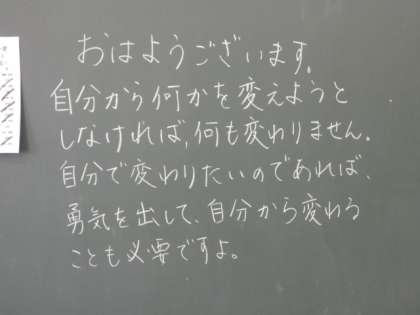 おはようございます。
自分から何かを変えようと
しなければ、何も変わりません。
自分で変わりたいのであれば、
勇気を出して、自分から変わる
ことも必要ですよ。